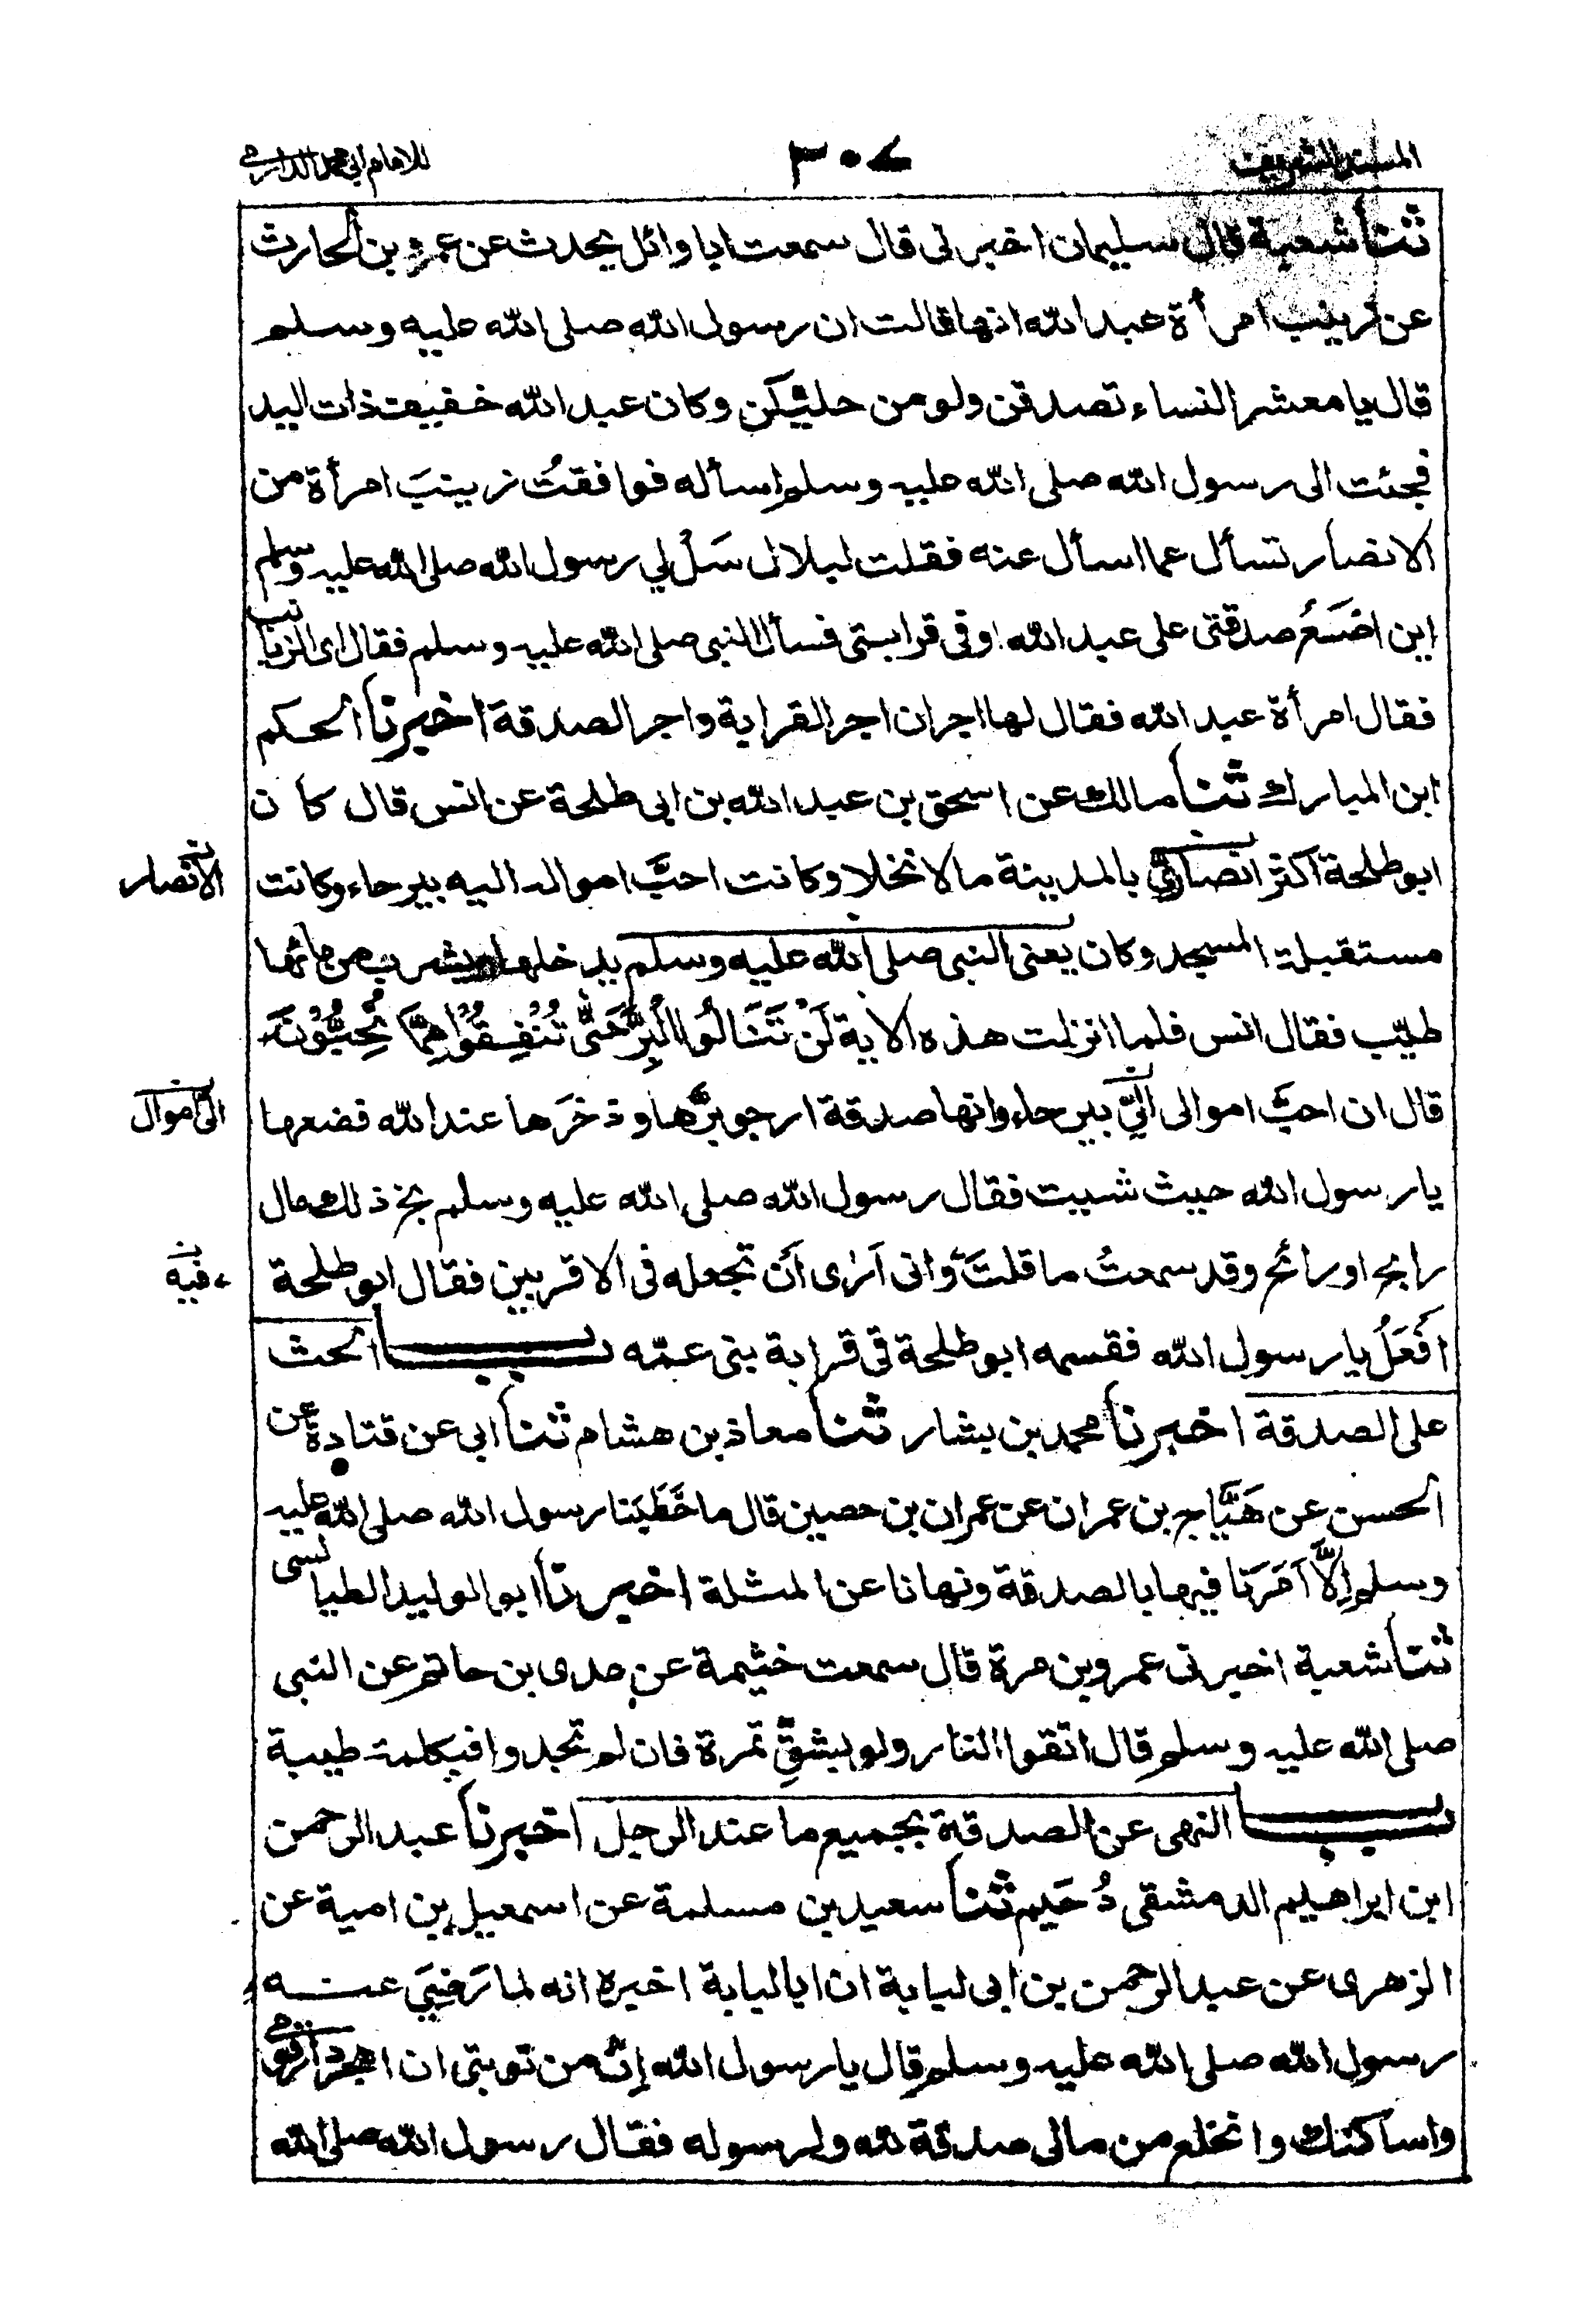 المسند الشريف
٣٠٧
للامام ابي محمد الدارمي
ثنا شعبة قال سليمان اخبرنى قال سمعت ابا وائل يحدث عن عمرو بن الحارث
عن زينب امرأة عبد الله انها قالت ان رسول الله صلى الله عليه وسلم
قال يا معشر النساء تصدقن ولو من حليكن وكان عبد الله خفيف ذات اليد
فجئت الى رسول الله صلى الله عليه وسلم اسأله فوافقتُ زينبَ امرأة من
الانصار تسأل عما اسأل عنه فقلت لبلال سَلْ لي رسول الله صلى الله عليه وسلم
اين اضَعُ صدقتى على عبد الله او فى قرابتى فسأل النبى صلى الله عليه وسلم فقال اى الزيانب
فقال امرأة عبد الله فقال لها اجران اجر القرابة واجر الصدقة اخبرنا الحكم
ابن المبارك ثنا مالك عن اسحق بن عبد الله بن ابى طلحة عن انس قال كان
ابو طلحة اكثر انصاريٍّ بالمدينة مالا نخلا وكانت احبَّ امواله اليه بيرحاء وكانت
الانصار
مستقبلة المسجد وكان يعنى النبى صلى الله عليه وسلم يدخلها ويشرب من مائها
طيّب فقال انس فلما انزلت هذه الاية لَنْ تَنَالُوا الْبِرَّ حَتّٰى تُنْفِقُوْا مِمَّا تُحِبُّوْنَ
قال ان احبَّ اموالى اليّ بيرحاء وانها صدقة ارجو بِرَّها وذخرَها عند الله فضعها
الىّ اموال
يا رسول الله حيث شيت فقال رسول الله صلى الله عليه وسلم بخ ذلك مال
رابح او رائح وقد سمعتُ ما قلتَ وانى اَرٰى اَن تجعله فى الاقربين فقال ابو طلحة
فيه
افْعَلُ يا رسول الله فقسمه ابو طلحة فى قرابة بنى عمّه باب الحث
على الصدقة اخبرنا محمد بن بشار ثنا معاذ بن هشام ثنا ابى عن قتادة عن
الحسن عن هَيَّاج بن عمران عن عمران بن حصين قال ما خَطَبَنا رسول الله صلى الله عليه
وسلم اِلّا اَمَرَنا فيها بالصدقة ونهانا عن المثلة اخبرنا ابو الوليد الطيالسى
ثنا شعبة اخبرنى عمرو بن مرة قال سمعت خثيمة عن عدى بن حاتم عن النبى
صلى الله عليه وسلم قال اتقوا النار ولو بشقِّ تمرة فان لم تجدوا فبكلمة طيبة
باب النهى عن الصدقة بجميع ما عند الرجل اخبرنا عبد الرحمن
ابن ابراهيم الدمشقى دُحَيم ثنا سعيد بن مسلمة عن اسمعيل بن امية عن
الزهرى عن عبد الرحمن بن ابى لبابة ان ابا لبابة اخبره انه لما رَضِيَ عنه
رسول الله صلى الله عليه وسلم قال يا رسول الله اِنَّ من توبتى ان اهجر دار قومى
واساكنك وانخلع من مالى صدقة لله ولرسوله فقال رسول الله صلى الله